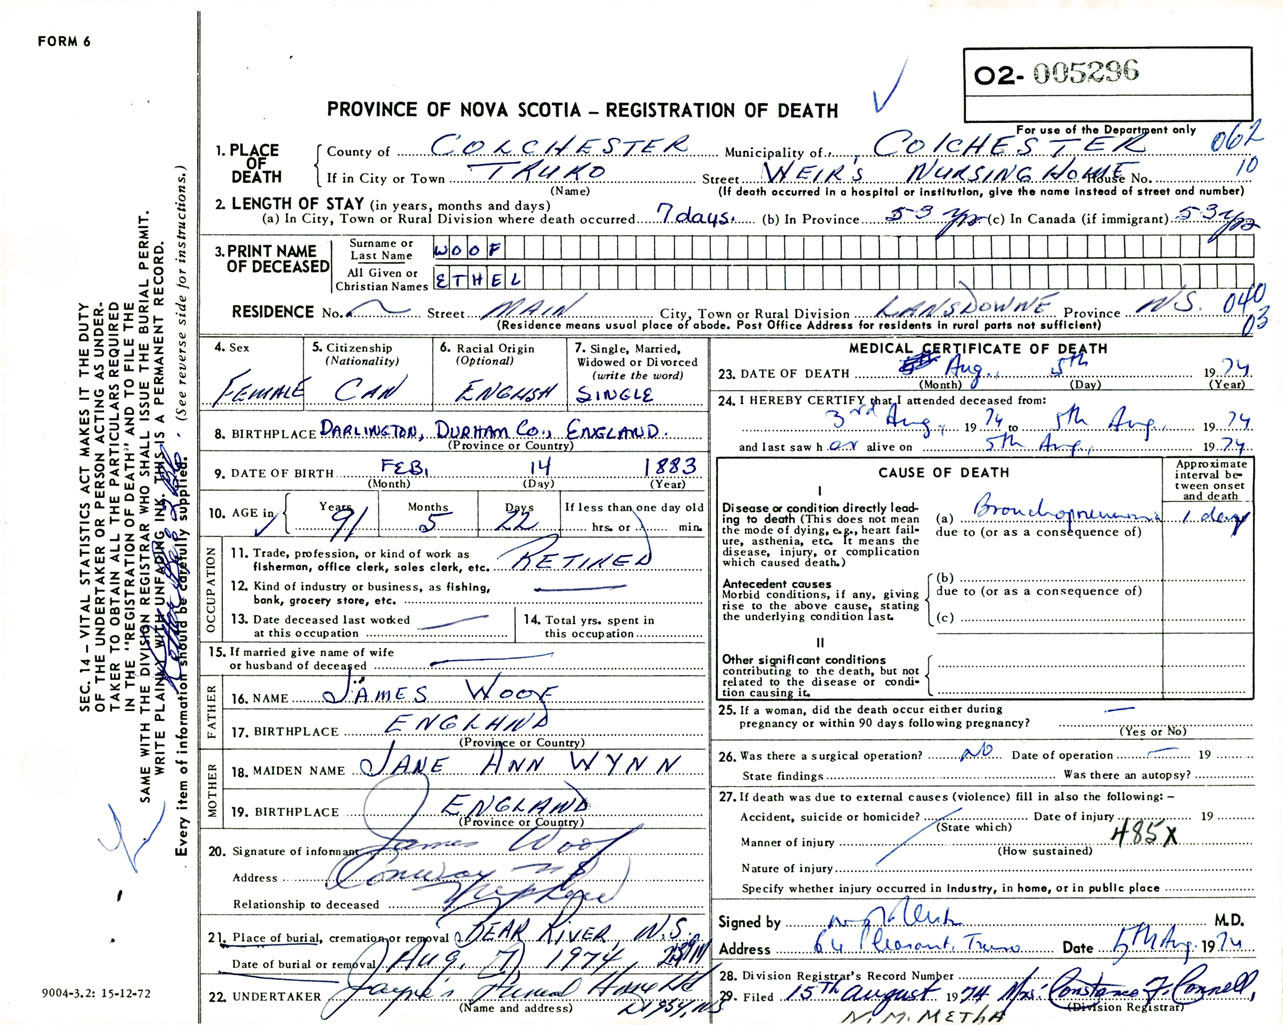 FORM 6
02-005296
For use of the Department only
PROVINCE OF NOVA SCOTIA – REGISTRATION OF DEATH
062
10
1. PLACE OF DEATH
County of COLCHESTER Municipality of COLCHESTER
If in City or Town TRURO Street WEIR'S NURSING HOME House No.
(Name) (If death occurred in a hospital or institution, give the name instead of street and number)
2. LENGTH OF STAY (in years, months and days)
(a) In City, Town or Rural Division where death occurred 7 days. (b) In Province 53 yrs (c) In Canada (if immigrant) 53 yrs
3. PRINT NAME OF DECEASED
Surname or Last Name WOOF
All Given or Christian Names ETHEL
RESIDENCE No. Street MAIN City, Town or Rural Division LANSDOWNE Province N.S. 040
03
(Residence means usual place of abode. Post Office Address for residents in rural parts not sufficient)
4. Sex
FEMALE
5. Citizenship (Nationality)
CAN
6. Racial Origin (Optional)
ENGLISH
7. Single, Married, Widowed or Divorced (write the word)
SINGLE
8. BIRTHPLACE DARLINGTON, DURHAM CO., ENGLAND.
(Province or Country)
9. DATE OF BIRTH FEB. 14 1883
(Month) (Day) (Year)
10. AGE in Years 91 Months 5 Days 22 If less than one day old
hrs. or min.
OCCUPATION
11. Trade, profession, or kind of work as fisherman, office clerk, sales clerk, etc. RETIRED
12. Kind of industry or business, as fishing, bank, grocery store, etc.
13. Date deceased last worked at this occupation
14. Total yrs. spent in this occupation
15. If married give name of wife or husband of deceased
FATHER
16. NAME JAMES WOOF
17. BIRTHPLACE ENGLAND
(Province or Country)
MOTHER
18. MAIDEN NAME JANE ANN WYNN
19. BIRTHPLACE ENGLAND
(Province or Country)
20. Signature of informant James Woof
Address Conway N S
Relationship to deceased Nephew
21. Place of burial, cremation or removal BEAR RIVER, N.S.
Date of burial or removal Aug. 7, 1974,
22. UNDERTAKER Jayne's Funeral Home Ltd
(Name and address)
MEDICAL CERTIFICATE OF DEATH
23. DATE OF DEATH Aug. 5th 1974
(Month) (Day) (Year)
24. I HEREBY CERTIFY that I attended deceased from:
3rd Aug., 1974 to 5th Aug., 1974
and last saw her alive on 5th Aug., 1974
CAUSE OF DEATH
Approximate interval between onset and death
I
Disease or condition directly leading to death (This does not mean the mode of dying, e.g., heart failure, asthenia, etc. It means the disease, injury, or complication which caused death.)
(a) Bronchopneumonia 1 day
due to (or as a consequence of)
Antecedent causes
Morbid conditions, if any, giving rise to the above cause, stating the underlying condition last.
(b)
due to (or as a consequence of)
(c)
II
Other significant conditions
contributing to the death, but not related to the disease or condition causing it.
25. If a woman, did the death occur either during pregnancy or within 90 days following pregnancy?
(Yes or No)
26. Was there a surgical operation? No Date of operation 19
State findings Was there an autopsy?
27. If death was due to external causes (violence) fill in also the following: –
Accident, suicide or homicide? Date of injury 19
(State which)
Manner of injury 485X
(How sustained)
Nature of injury
Specify whether injury occurred in Industry, in home, or in public place
Signed by M.D.
Address 64 Pleasant, Truro Date 5th Aug. 1974
28. Division Registrar's Record Number
29. Filed 15th August 1974 Mrs. Constance F. Connell,
(Division Registrar)
N. M. METHA
SEC. 14 – VITAL STATISTICS ACT MAKES IT THE DUTY
OF THE UNDERTAKER OR PERSON ACTING AS UNDER-
TAKER TO OBTAIN ALL THE PARTICULARS REQUIRED
IN THE "REGISTRATION OF DEATH" AND TO FILE THE
SAME WITH THE DIVISION REGISTRAR WHO SHALL ISSUE THE BURIAL PERMIT.
WRITE PLAINLY WITH UNFADING INK. THIS IS A PERMANENT RECORD.
Every item of information should be carefully supplied. (See reverse side for instructions.)
9004-3.2: 15-12-72